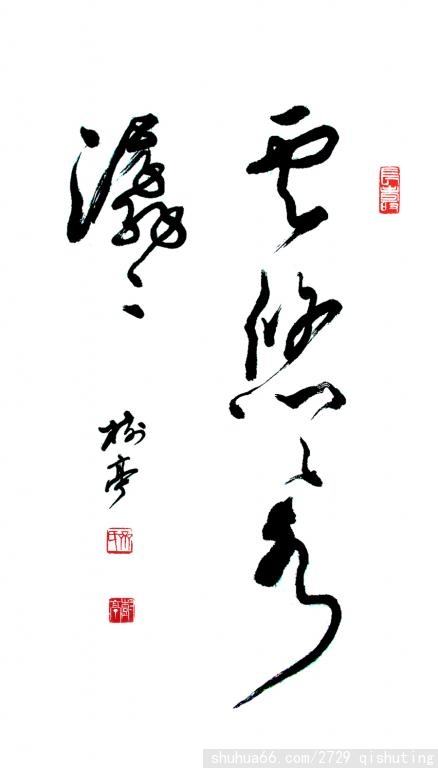 長壽
雲悠々水
潺々
樹亭
shuhua66.com/2729 qishuting